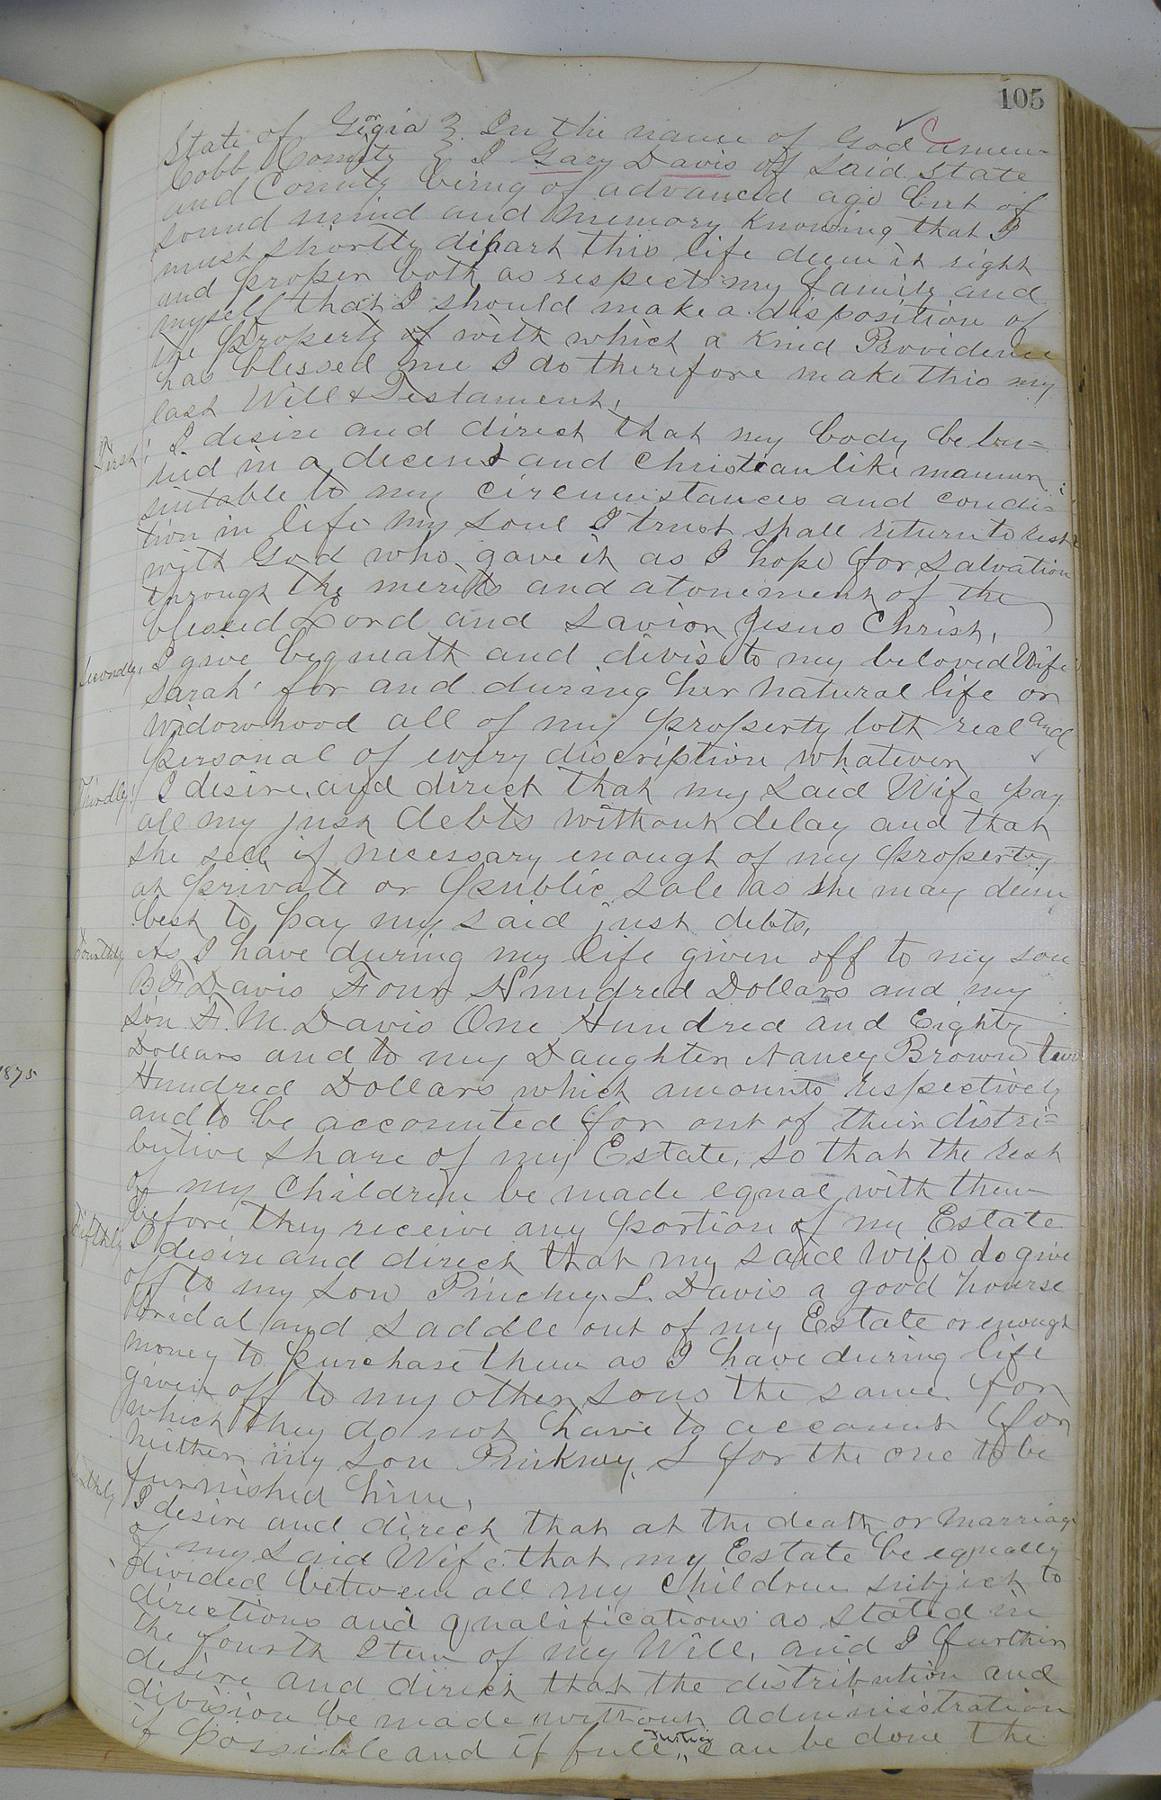 105
State of Georgia } In the name of God Amen
Cobb County } I Gary Davis of Said State
and County being of advanced age but of
sound mind and memory Knowing that I
must shortly depart this life deem it right
and proper both as respects my family and
myself that I should make a disposition of
the Property of with which a Kind Providence
has blessed me I do therefore make this my
last Will & Testament,
First; I desire and direct that my body be bur=
ried in a decent and Christian like manner
suitable to my circumstances and condi=
tion in life my soul I trust shall return to rest
with God who gave it as I hope for Salvation
through the merits and atonement of the
blessed Lord and Savior Jesus Christ,
Secondly, I give bequeath and divise to my beloved Wife
Sarah for and during her natural life or
Widowhood all of my property both real and
personal of every discription whatever
Thirdly, I desire and direct that my Said Wife pay
all my just debts without delay and that
she sell if necessary enough of my property
at private or public Sale as she may deem
best to pay my said just debts,
Fourthly As I have during my life given off to my son
B F Davis Four Hundred Dollars and my
Son F. M. Davis One Hundred and Eighty
Dollars and to my Daughter Nancy Brown two
Hundred Dollars which amounts respectively
and to be accounted for out of their distri=
butive Share of my Estate, so that the rest
of my Children be made equal with them
before they receive any portion of my Estate
Fifthly I desire and direct that my said Wife do give
off to my Son Pinckney L. Davis a good hourse
bridal and Saddle out of my Estate or enough
money to purchase them as I have during life
given off to my other Sons the same for
which they do not have to account for
neither my Son Pinkney L for the one to be
furnished him,
Sixthly I desire and direct that at the death or Marriage
of my Said Wife that my Estate be equally
divided between all my Children subject to
directions and qualifications as stated in
the fourth Item of my Will, and I further
desire and direct that the distribution and
division be made without administration
if possible and if full Justice can be done the
1875